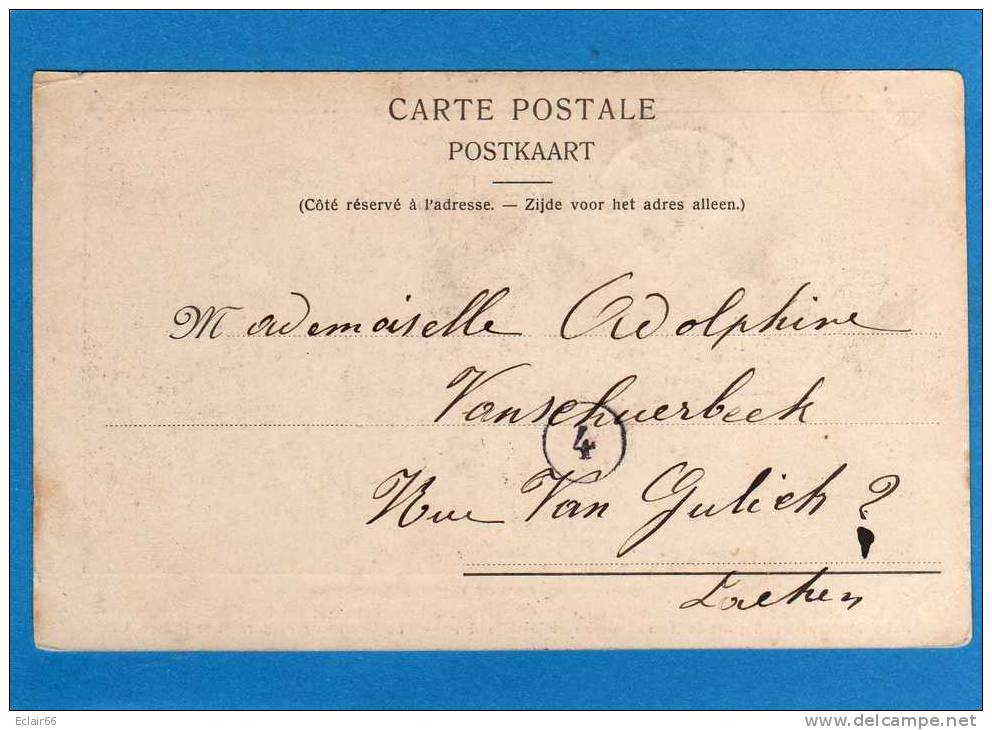 CARTE POSTALE
POSTKAART
(Côté réservé à l'adresse. — Zijde voor het adres alleen.)
Mademoiselle Adolphine
Vanschuerbeek
4
Rue Van Gulick ?
Laeken
Eclair66
www.delcampe.net